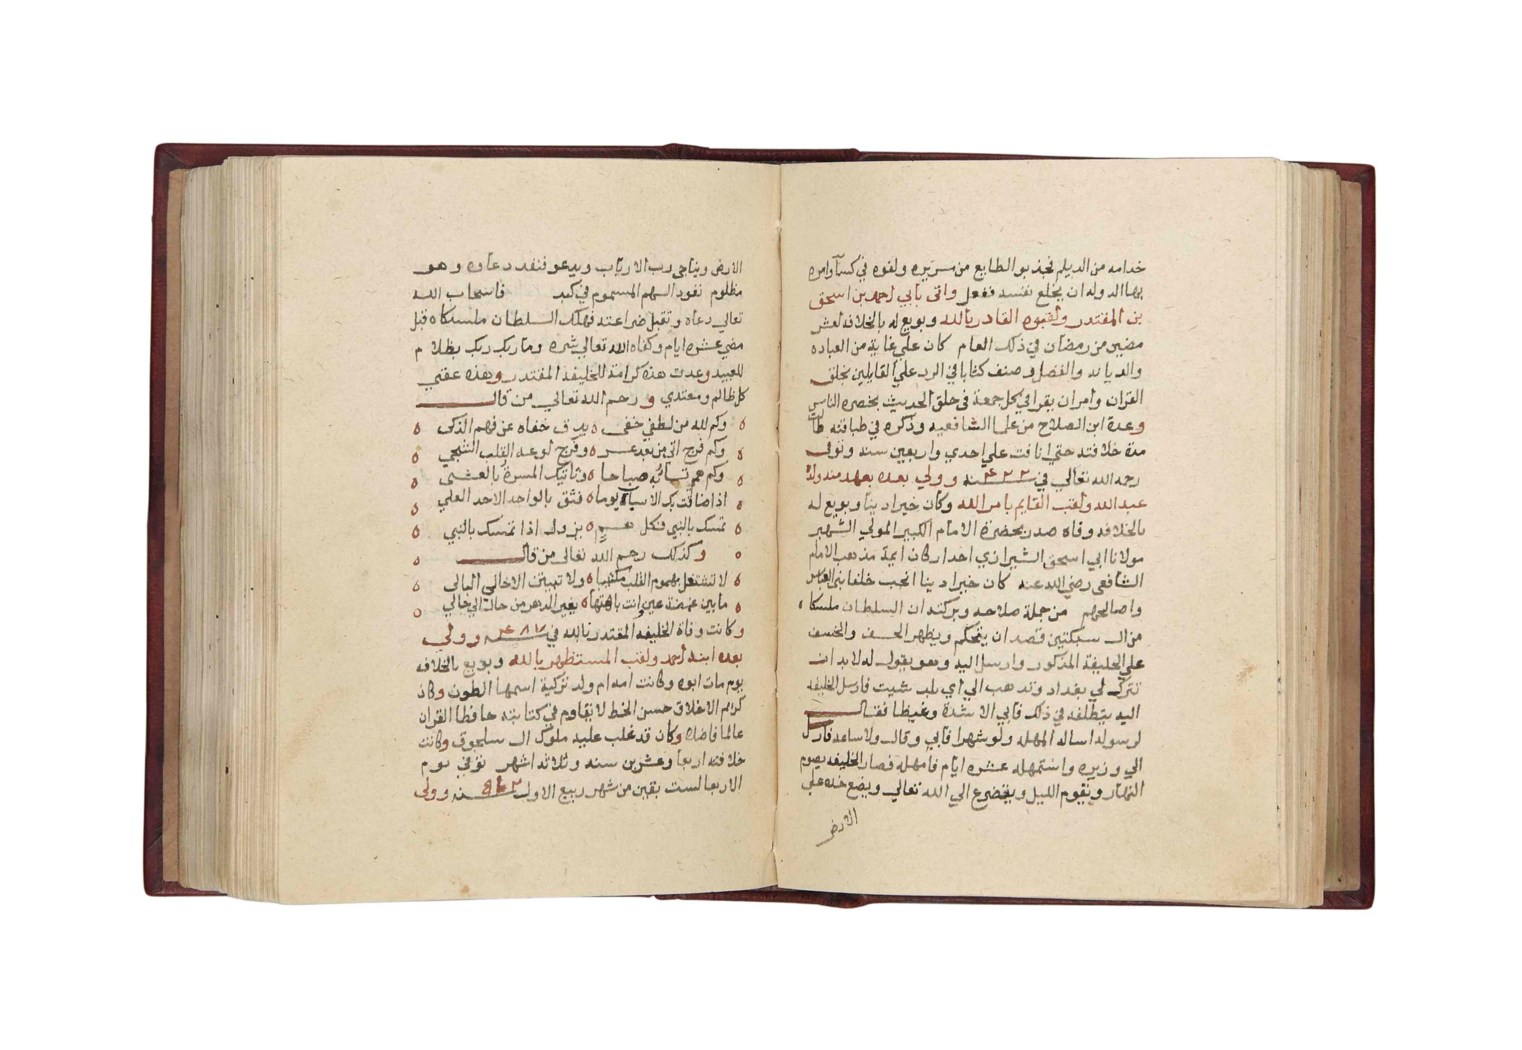 خدامه من الديلم فجذبوا الطايع من سريره ولفوه في كسآ وامره
بها الدوله ان يخلع نفسه ففعل واتى بابي احمد بن اسحق
بن المقتدر ولقبوه القادر بالله وبويع له بالخلافه لعشر
مضين من رمضان في ذلك العام كان علي غاية من العباده
والديانه والفضل وصنف كتابا في الرد علي القايلين بخلق
القران وامر ان يقرا في كل جمعة في حلق الحديث بحضرة الناس
وعده ابن الصلاح من علما الشافعيه وذكره في طبقاته طالت
مدة خلافته حتي انافت علي احدي واربعين سنه وتوفى
رحمه الله تعالي في سنه ٤٢٢ وولي بعده بعهد منه ولده
عبدالله ولقب القايم بامر الله وكان خيرا دينا وبويع له
بالخلافه وفاه صدر بحضرة الامام الكبير المولي الشهير
مولانا ابي اسحق الشيرازي احد اركان ايمة مذهب الامام
الشافعي رضي الله عنه كان خيرا دينا انجب خلفا بني العباس
واصالحهم من جملة صلاحه وبركته ان السلطان ملسكاه
من ال سبكتين قصد ان يتحكم ويظهر الحيف والخسف
علي الخليفة المذكور وارسل اليه وهو يقول له لا بد ان
تترك لي بغداد وتذهب الي اي بلد شيت فارسل الخليفه
اليه يتلطفه في ذلك فابي الا شدة وغيظا فقال
لرسوله اساله المهله ولو شهرا فابي وقال ولا ساعه فارسل
الي وزيره واستمهله عشرة ايام فامهله فصار الخليفه يصوم
النهار ويقوم الليل ويتضرع الي الله تعالي ويضع خده علي
الارض
الارض ويناجي رب الارباب ويدعو فنفد دعاوه وهو
مظلوم نفود السهم المسموم في كبد فاستجاب الله
تعالي دعاه وتقبل ضراعته فهلك السلطان ملسكاه قبل
مضي عشرة ايام وكفاه الله تعالي شره وما ربك بظلام
للعبيد وعدت هذه كرامة للخليفة المقتدر وهذه عقبي
كل ظالم ومعتدي ورحم الله تعالي من قال
وكم لله من لطفي خفى يدق خفاه عن فهم الذكى
وكم فرج اتى من بعد عسر وفرج لوعه القلب الشجي
وكم هم تساء به صباحا وتاتيك المسرة بالعشي
اذا ضاقت بك الاسباب يوما فثق بالواحد الاحد العلي
تمسك بالنبي فكل هم يزول اذا تمسك بالنبي
وكذلك رحم الله تعالى من قال
لا تشتغل بهموم القلب مكتئبا ولا تبيتن الا خالي البالى
ما بين غمضة عين وانتباهتها يغير الدهر من حالة الي حالي
وكانت وفاة الخليفه المقتدر بالله في سنه ٤٨٧ وولي
بعده ابنه احمد ولقب المستظهر بالله وبويع بالخلافه
يوم مات ابوه وكانت امه ام ولد تركية اسمها الطون وكان
كريم الاخلاق حسن الخط لا يقاوم في كتابته حافظا القران
عالما فاضلا وكان قد غلب عليه ملوك ال سلجوق وكانت
خلافته اربعا وعشرين سنه وثلاثة اشهر توفي يوم
الاربعا لست بقين من شهر ربيع الاول سنه وولي